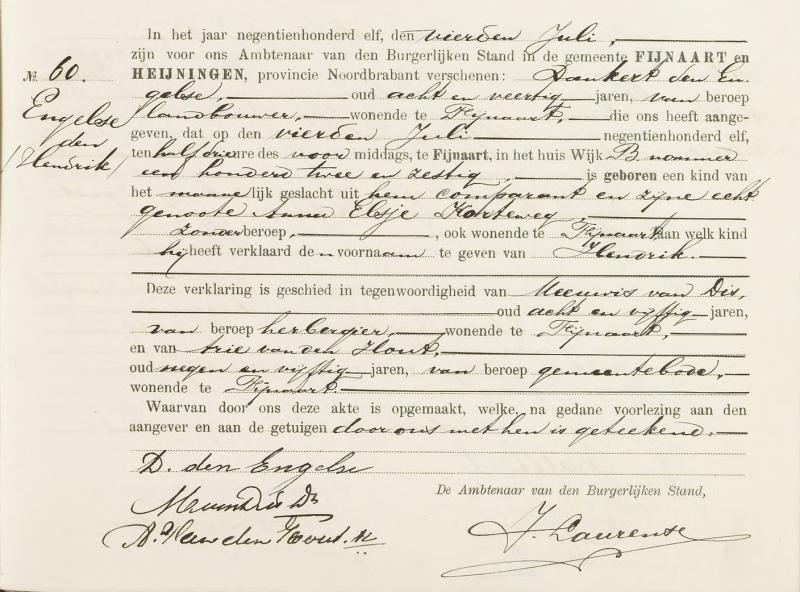 In het jaar negentienhonderd elf, den vierden Juli,
zijn voor ons Ambtenaar van den Burgerlijken Stand in de gemeente FIJNAART en
№. 60. HEIJNINGEN, provincie Noordbrabant verschenen: Dankert den En-
gelse, oud acht en veertig jaren, van beroep
Engelse landbouwer, wonende te Fijnaart, die ons heeft aange-
den geven, dat op den vierden Juli negentienhonderd elf,
/Hendrik/ ten half drie ure des voor middags, te Fijnaart, in het huis Wijk B nommer
een honderd twee en zestig, is geboren een kind van
het mannelijk geslacht uit hem comparant en zijne echt
genoote Anna Elsje Korteweg,
zonder beroep, , ook wonende te Fijnaart aan welk kind
hij heeft verklaard den voornaam te geven van Hendrik.
Deze verklaring is geschied in tegenwoordigheid van Meeuwis van Dis,
oud acht en vijftig jaren,
van beroep herbergier, wonende te Fijnaart,
en van Arie van den Hout,
oud negen en vijftig jaren, van beroep gemeentebode,
wonende te Fijnaart.
Waarvan door ons deze akte is opgemaakt, welke, na gedane voorlezing aan den
aangever en aan de getuigen door ons met hen is geteekend.
D. den Engelse
De Ambtenaar van den Burgerlijken Stand,
M van Dis
A. Van den Hout
J. Laurense